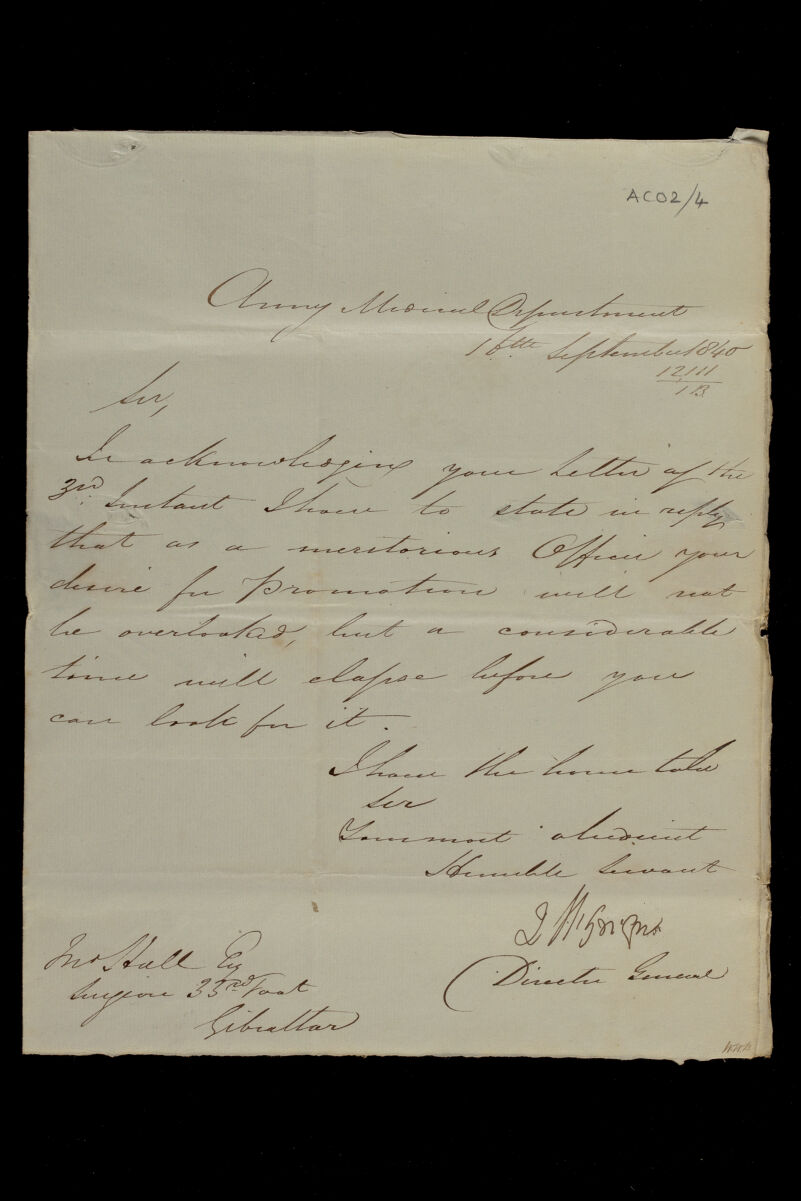 ACO2/4
Army Medical Department
16th September 1840
12,111
13
Sir,
In acknowledging your Letter of the
3rd. Instant I have to state in reply
that as a meritorious Officer your
desire for Promotion will not
be overlooked, but a considerable
time will elapse before you
can look for it.
I have the honor to be
Sir
Your most obedient
Humble Servant
J McGrigor
Director General
Jno Hall Esq
Surgeon 33rd Foot
Gibraltar